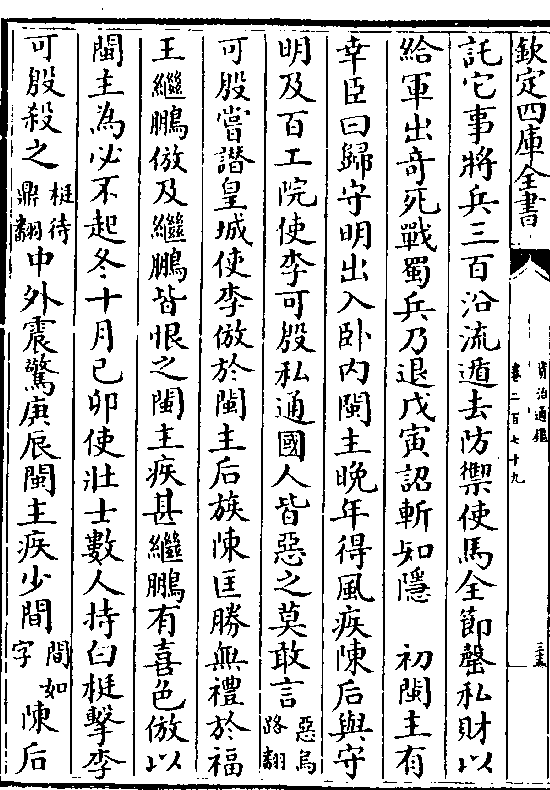 欽定四庫全書
資治通鑑
卷二百七十九
託它事將兵三百沿流遁去防禦使馬全節罄私財以
給軍出奇死戰蜀兵乃退戊寅詔斬知隱　初閩主有
幸臣曰歸守明出入卧内閩主晚年得風疾陳后與守
明及百工院使李可殷私通國人皆惡之莫敢言惡烏路翻
可殷嘗譖皇城使李倣於閩主后族陳匡勝無禮於福
王繼鵬倣及繼鵬皆恨之閩主疾甚繼鵬有喜色倣以
閩主為必不起冬十月己卯使壯士數人持白梃擊李
可殷殺之梃待鼎翻中外震驚庚辰閩主疾少間間如字陳后